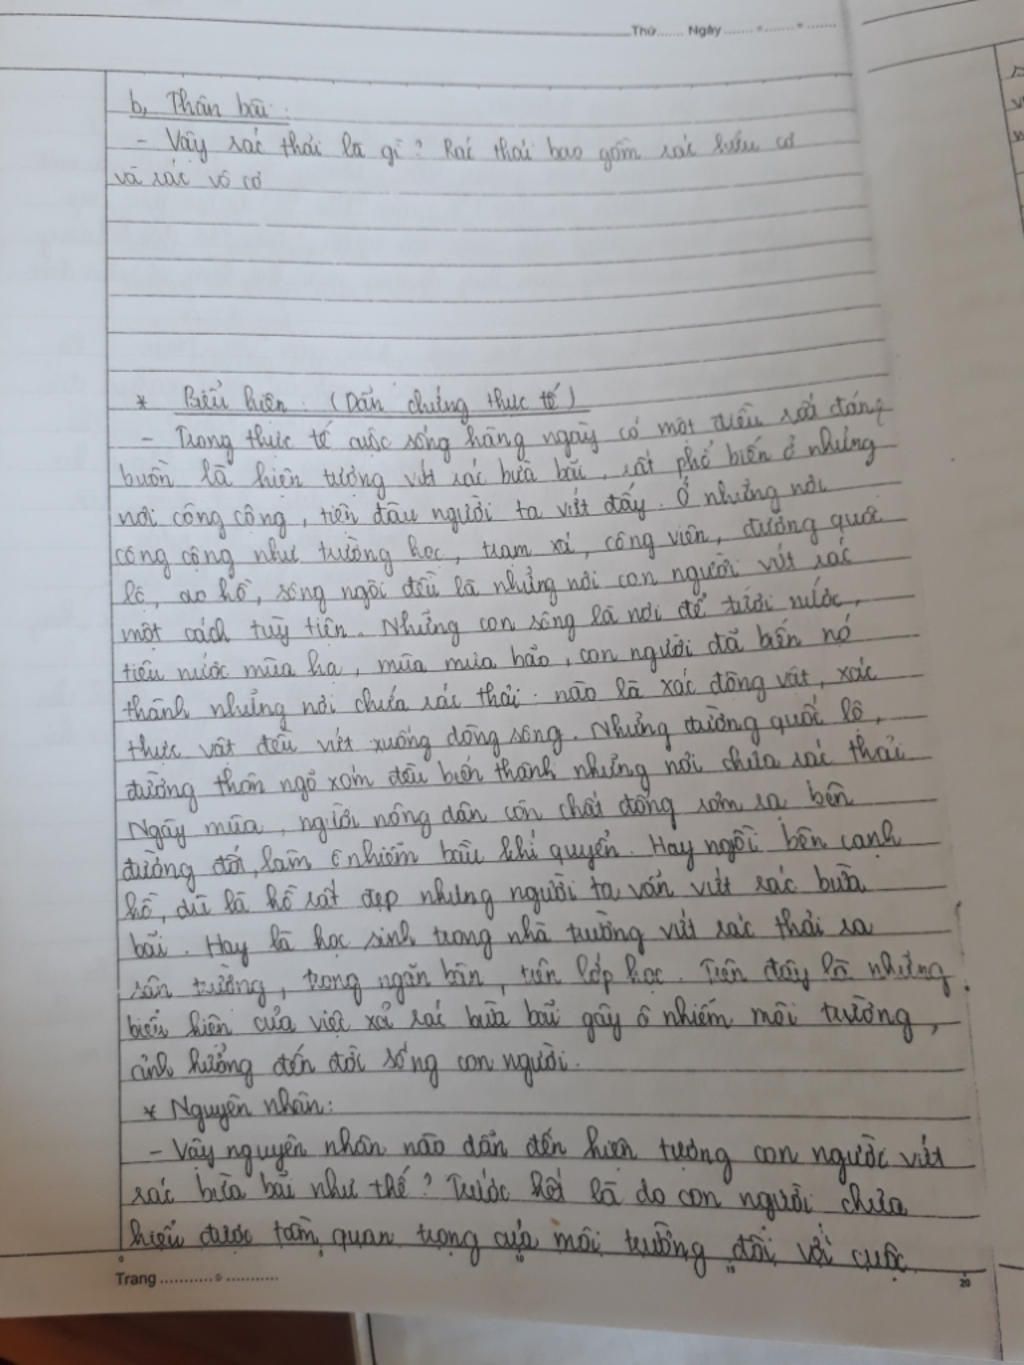 Thứ....... Ngày ....... - ....... - .......
b, Thân bài:
- Vậy rác thải là gì? Rác thải bao gồm rác hữu cơ
và rác vô cơ
* Biểu hiện: (Dẫn chứng thực tế)
- Trong thực tế cuộc sống hằng ngày có một điều rất đáng
buồn là hiện tượng vứt rác bừa bãi, rất phổ biến ở những
nơi công cộng, tiện đâu người ta vứt đấy. Ở những nơi
công cộng như trường học, trạm xá, công viên, đường quốc
lộ, ao hồ, sông ngòi đều là những nơi con người vứt rác
một cách tuỳ tiện. Những con sông là nơi để tưới nước,
tiêu nước mùa hạ, mùa mưa bão, con người đã biến nó
thành những nơi chứa rác thải: nào là xác động vật, xác
thực vật đều vứt xuống dòng sông. Những đường quốc lộ,
đường thôn ngõ xóm đều biến thành những nơi chứa rác thải
Ngày mùa, người nông dân còn chất đống rơm rạ bên
đường đốt, làm ô nhiễm bầu khí quyển. Hay ngồi bên cạnh
hồ, dù là hồ rất đẹp nhưng người ta vẫn vứt rác bừa
bãi. Hay là học sinh trong nhà trường vứt rác thải ra
sân trường, trong ngăn bàn, trên lớp học. Trên đây là những
biểu hiện của việc xả rác bừa bãi gây ô nhiễm môi trường,
ảnh hưởng đến đời sống con người.
* Nguyên nhân:
- Vậy nguyên nhân nào dẫn đến hiện tượng con người vứt
rác bừa bãi như thế? Trước hết là do con người chưa
hiểu được tầm quan trọng của môi trường đối với cuộc
0 5 10 15 20
Trang ........... - ...........